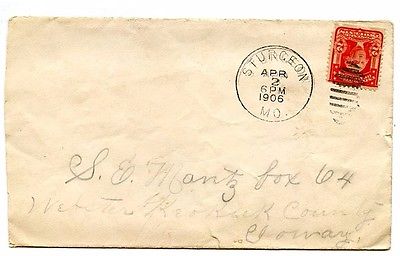 STURGEON
APR
2
6 PM
1906
MO.
S. E. Mantz box 64
Webster Keokuk County
Ioway